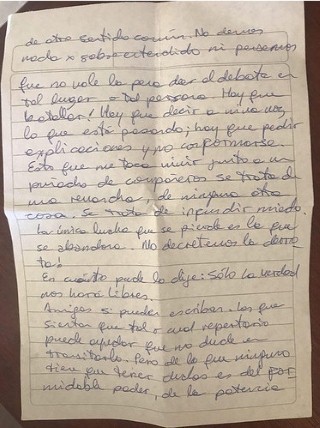 de otro sentido común. No demos
nada x sobreentendido ni pensemos
que no vale la pena dar el debate en
tal lugar o tal persona. Hay que
batallar! Hay que decir a viva voz
lo que está pasando; hay que pedir
explicaciones y no conformarse.
Esto que me toca vivir junto a un
puñado de compañeros se trata de
una revancha, de ninguna otra
cosa. Se trata de infundir miedo.
La única lucha que se pierde es la que
se abandona. No decretemos la derro
ta!
En cuanto pude lo dije: Sólo la verdad
nos hará libres.
Amigos si pueden escriban. Los que
sientan que tal o cual repertorio
puede ayudar que no dude en
transitarlo. Pero de lo que ninguno
tiene que tener dudas es del for
midable poder, de la potencia